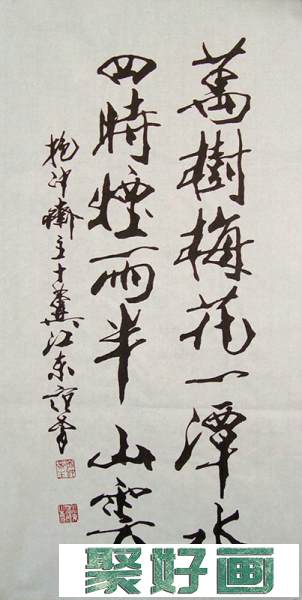 萬樹梅花一潭水
四時煙雨半山雲
抱沖齋主十翼江東范曾
聚好画